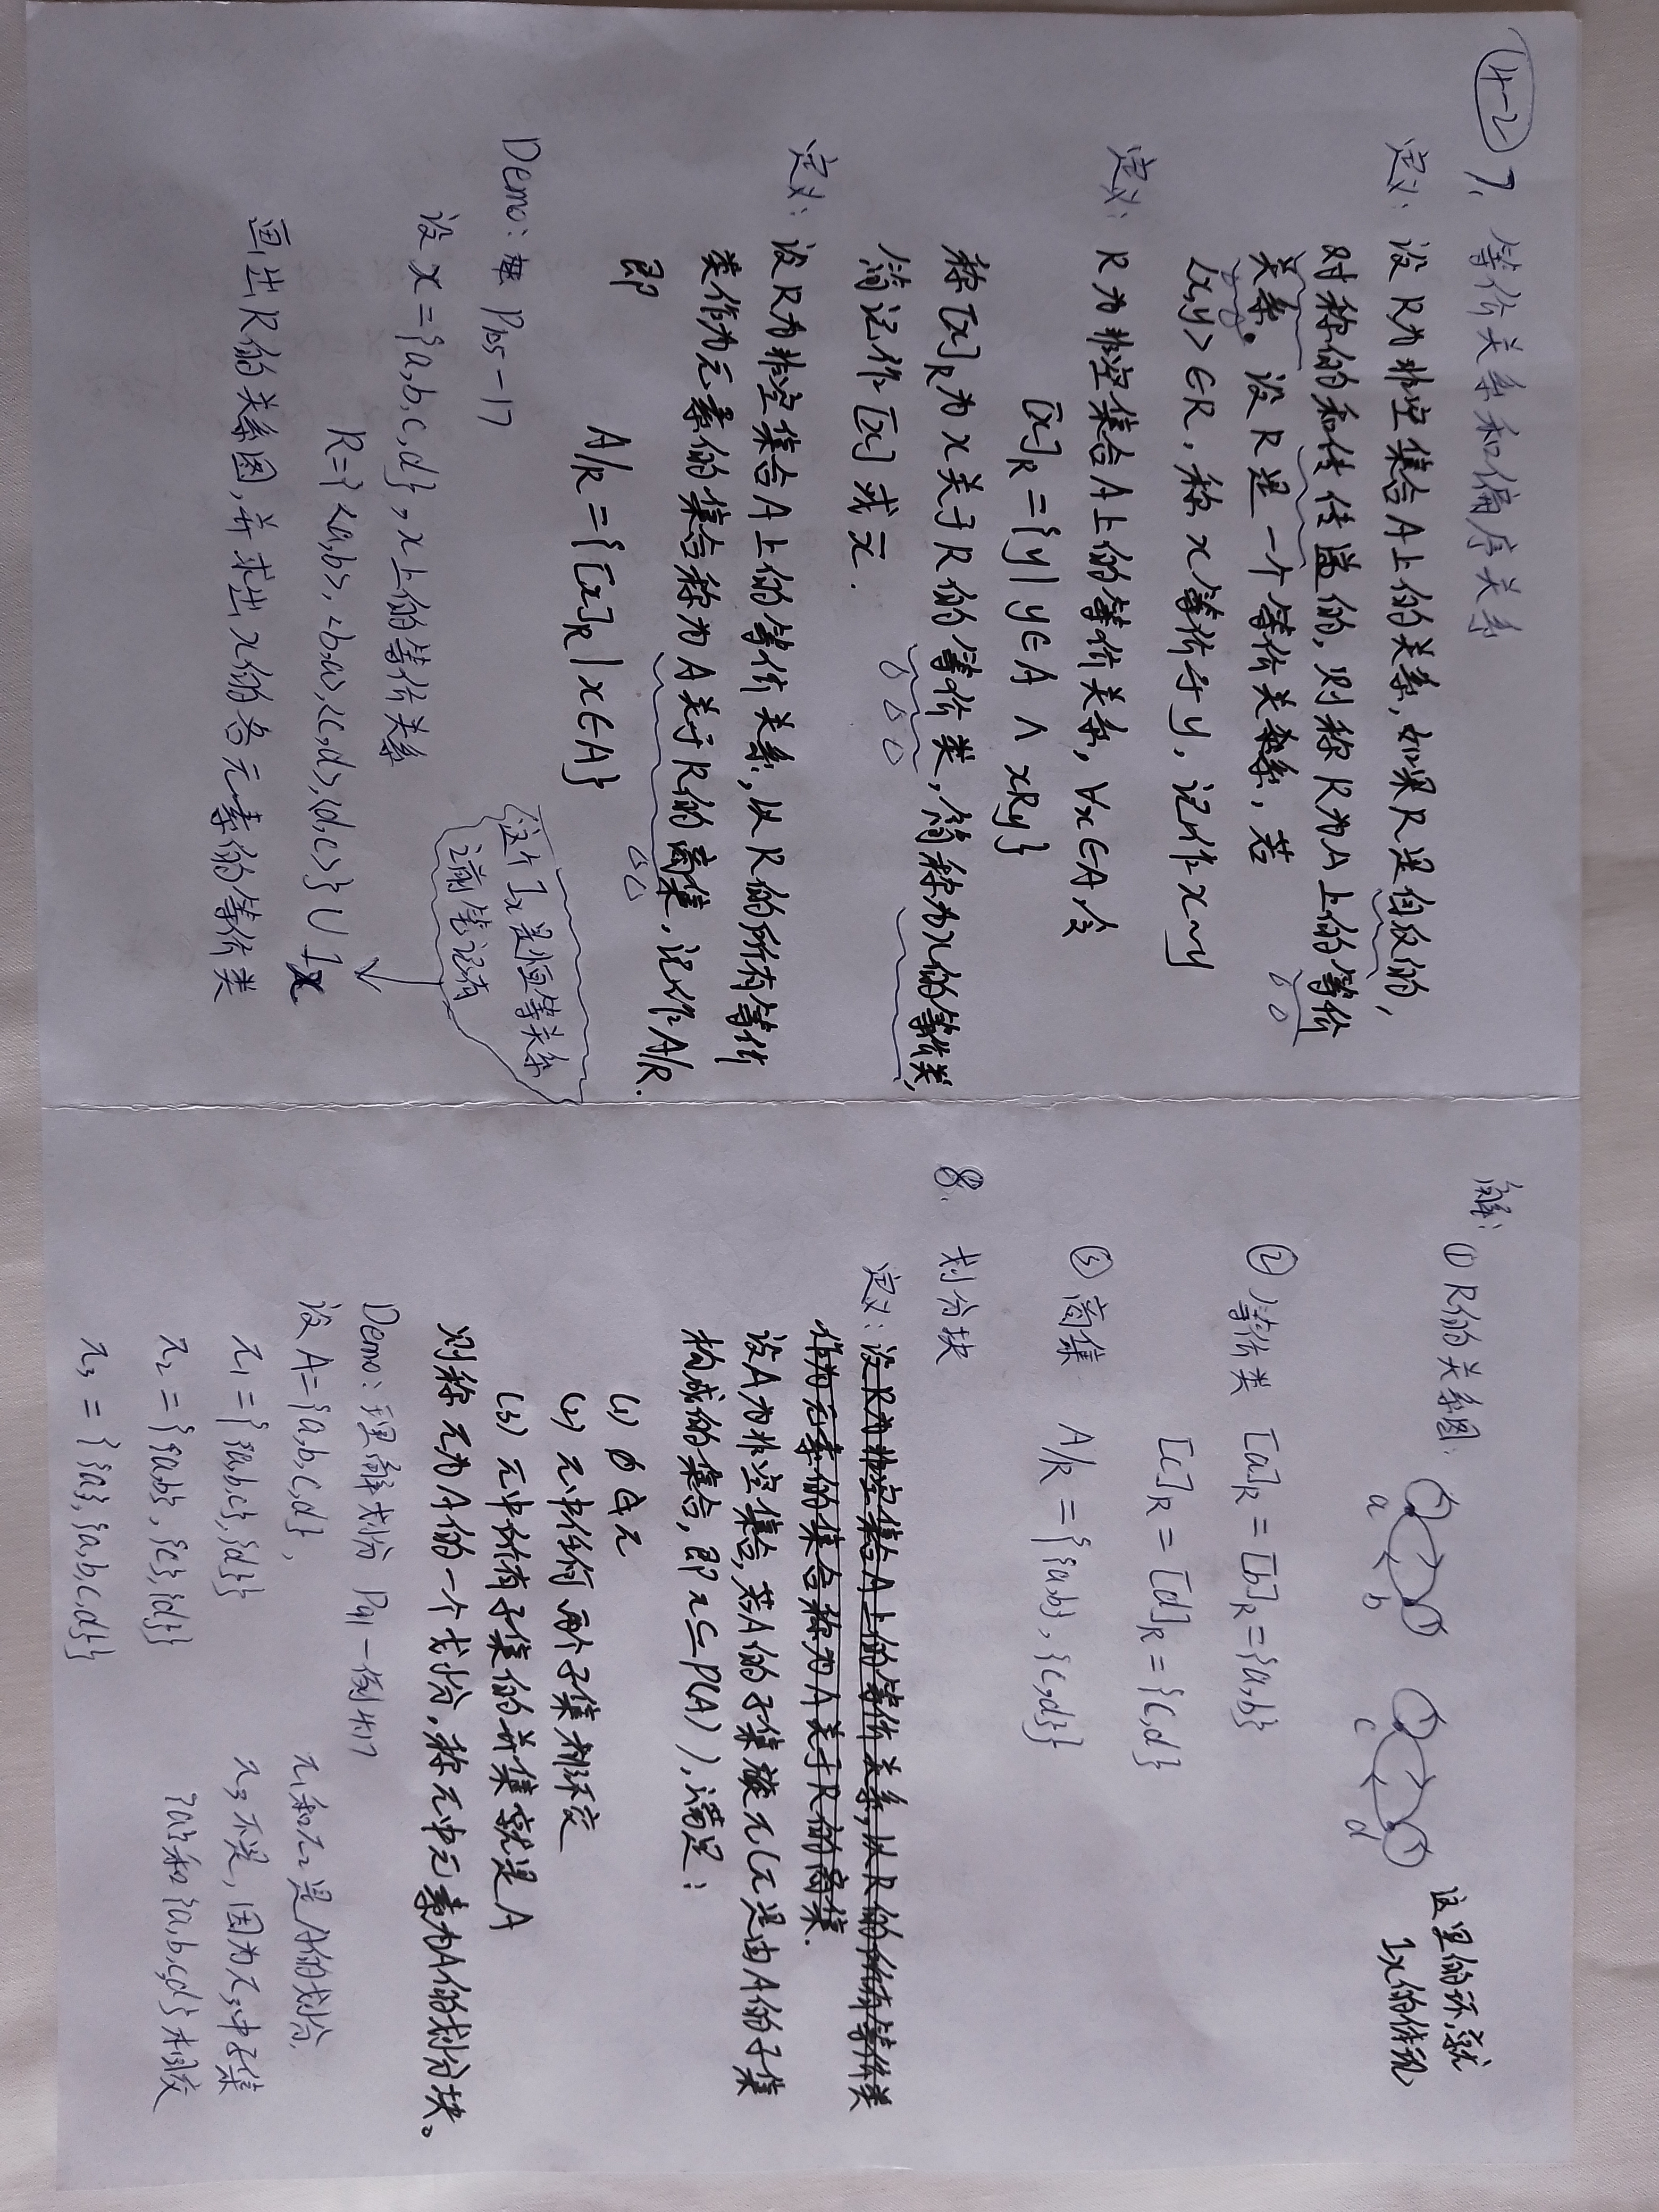 4-2 7. 等价关系和偏序关系
定义: 设R为非空集合A上的关系,如果R是自反的,
对称的和传传递的,则称R为A上的等价
关系。设R是一个等价关系,若
<x,y>∈R,称x等价于y,记作x~y
定义: R为非空集合A上的等价关系,∀x∈A,令
[x]R={y|y∈A ∧ xRy}
称[x]R为x关于R的等价类,简称为x的等价类,
简记作[x]或x̄.
定义: 设R为非空集合A上的等价关系,以R的所有等价
类作为元素的集合称为A关于R的商集,记作A/R.
即
A/R={[x]R|x∈A}
Demo: P105-17
这个Ix是恒等关系
之前笔记有
设x={a,b,c,d},x上的等价关系
R={<a,b>,<b,a>,<c,d>,<d,c>}∪Ix
画出R的关系图,并求出x的各元素的等价类
解: ①R的关系图: a b c d
这里的环,就
Ix的体现
② 等价类 [a]R=[b]R={a,b}
[c]R=[d]R={c,d}
③ 商集 A/R={{a,b},{c,d}}
8. 划分块
定义: 设R为非空集合A上的等价关系,以R的所有等价类
作为元素的集合称为A关于R的商集.
设A为非空集合,若A的子集族π(π是由A的子集
构成的集合,即π⊆P(A)),满足:
(1) ∅∉π
(2) π中任何两个子集都不交
(3) π中所有子集的并集就是A
则称π为A的一个划分,称π中元素为A的划分块。
Demo: 理解划分 P91-例4.17
设A={a,b,c,d},
π1={{a,b,c},{d}}
π2={{a,b},{c},{d}}
π3={{a},{a,b,c,d}}
π1和π2是A的划分,
π3不是,因为π3中子集
{a}和{a,b,c,d}相交